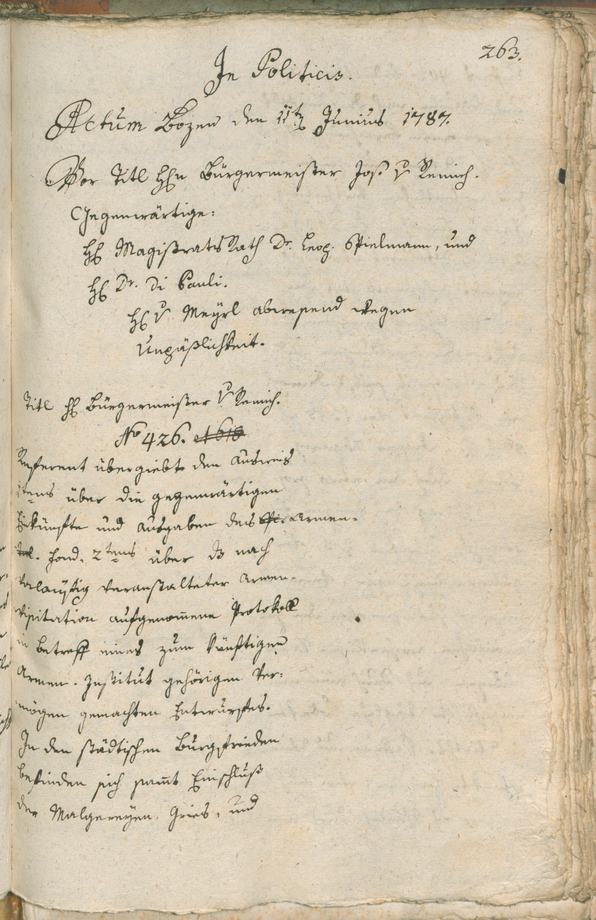 263.
In Politicis.
Actum Bozen den 11t Junius 1787.
Vor Titl Hhn Bürgermeister Jos: v Remich.
Gegenwärtige:
Hh Magistrats Rath Dr. Leop. Spielmann, und
Hh Dr. Di Pauli.
Hh v Meyrl abwesend wegen
Unpäßlichkeit.
Titl hh Bürgermeister v Remich.
No 426.
Referent übergiebt den Ausweis
über die gegenwärtigen
Einkünfte und Ausgaben des Armen-
fond. 2tens über das nach
veranstalteter Armen-
visitation aufgenommene Protokoll
in betreff eines zum künftigen
Armen-Institut gehörigen Ver-
mögen gemachten Entwurfes.
In den städtischen Burgfrieden
befinden sich sammt Einschluß
der Malgereyen, Gries, und